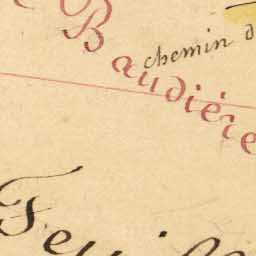 Baudière
chemin d
Feuill